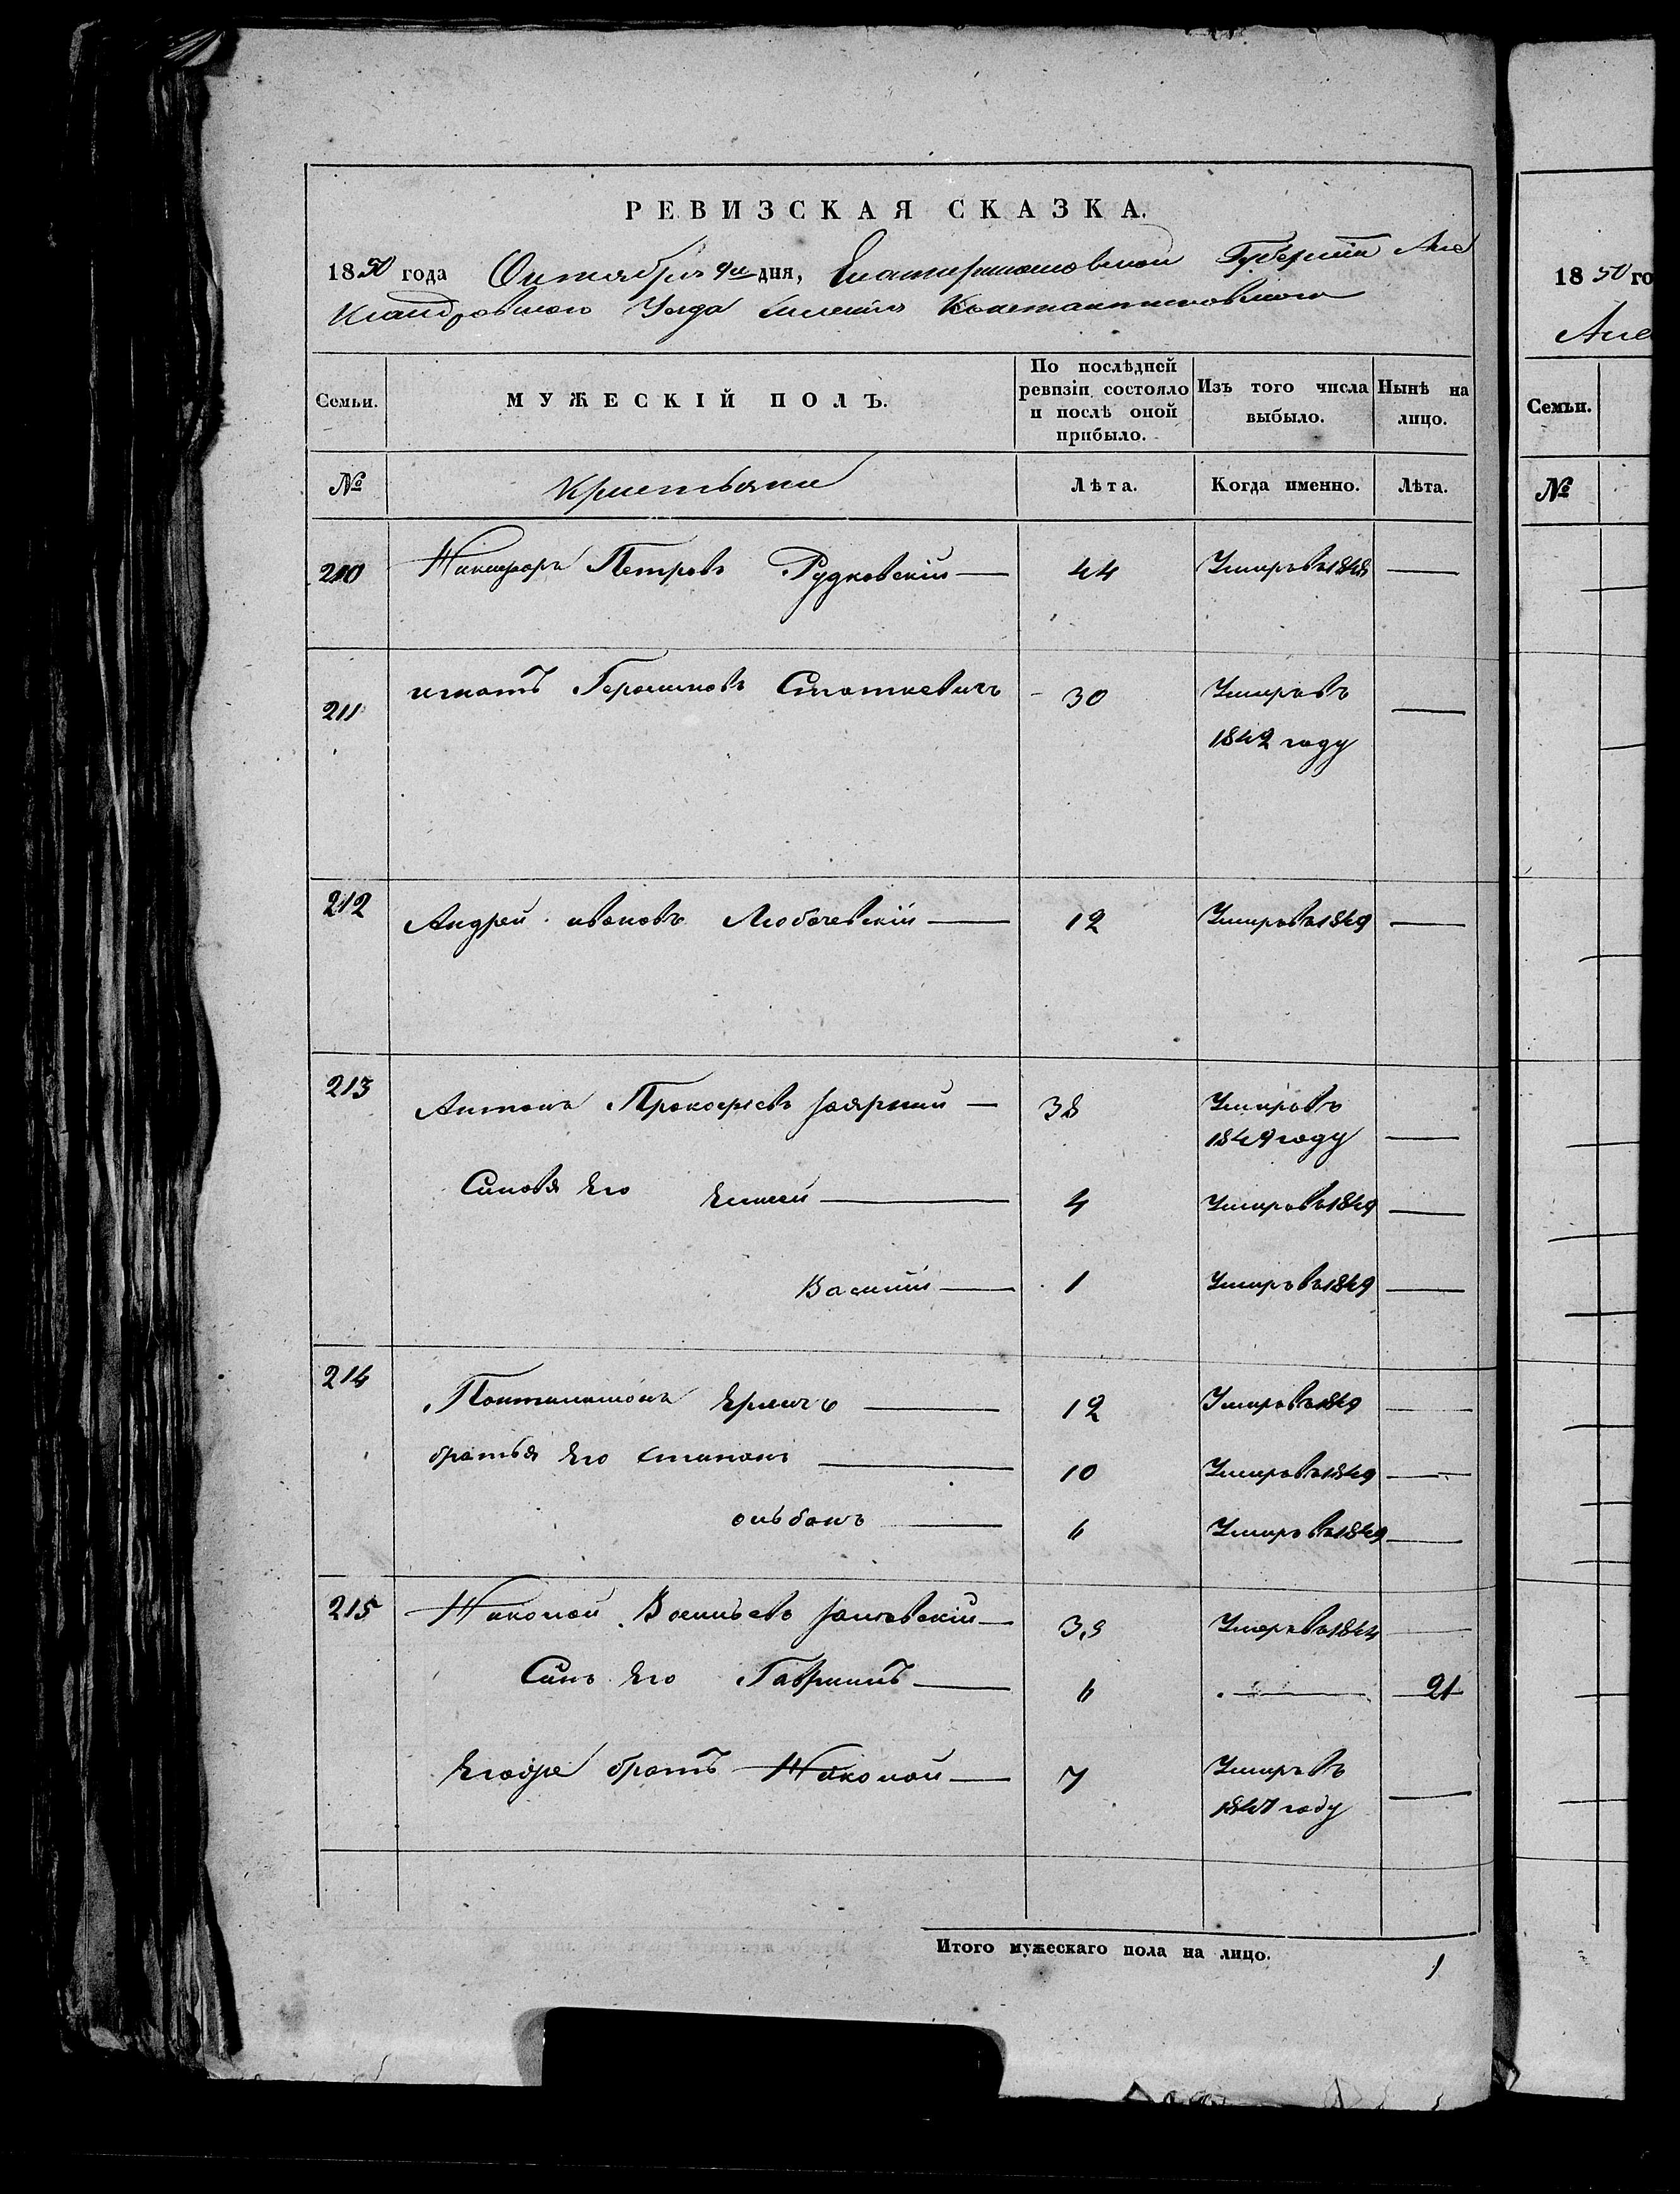 РЕВИЗСКАЯ СКАЗКА.
1850 года Октября 9го дня, Екатеринославской Губерніи Але
ксандровскаго Уезда Селенія Константиновскаго
Семьи.
МУЖЕСКІЙ ПОЛЪ.
По послѣдней ревизіи состояло и послѣ оной прибыло.
Изъ того числа выбыло.
Нынѣ на лицо.
№
Кристьяни
Лѣта.
Когда именно.
Лѣта.
210 Никифоръ Петровъ Рудковскій — 44 Умиръ въ 1848 —
211 игнатъ Герасимовъ Статкевичъ - 30 Умиръ въ
1849 году —
212 Андрей ивановъ Любачевскій — 12 Умиръ въ 1849 —
213 Антонъ Прокофіевъ — 38 Умиръ въ
1849 году —
Синовя Его — 4 Умиръ въ 1849 —
Василій — 1 Умиръ въ 1849 —
214 Понтилимонъ — 12 Умиръ въ 1849 —
братья Его Степанъ — 10 Умиръ въ 1849 —
— 6 Умиръ въ 1849 —
215 Николай Васильевъ — 39 Умеръ въ 1844 —
Синъ Его Гавриилъ — 6 — 21
братъ Николай — 7 Умиръ въ
1847 году —
Итого мужескаго пола на лицо. 1
1850 го
Але
Семьи.
№